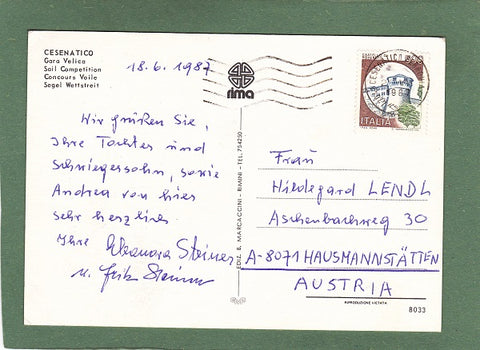 CESENATICO
Gara Velica
Sail Competition
Concours Voile
Segel Wettstreit
18.6.1987
rima
CESENATICO
ITALIA
Wir grüßen Sie,
Ihre Tochter und
Schwiegersohn, sowie
Andrea von hier
sehr herzlich
Ihre Eleonora Steiner
u. Fritz Steiner
EDIZ. B. MARCACCINI - RIMINI - TEL. 754250
Frau
Hildegard LENDL
Aschenbachweg 30
A-8071 HAUSMANNSTÄTTEN
AUSTRIA
RIPRODUZIONE VIETATA
8033